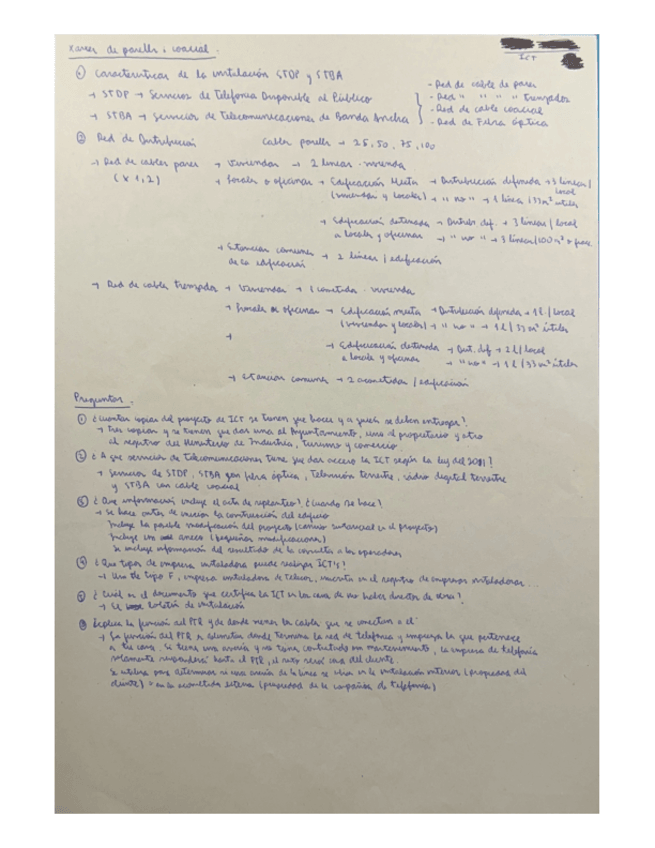 Xarxes de parells i coaxial.
ICT
① Características de la instalación STDP y STBA
→ STDP → Servicios de Telefonía Disponible al Público
→ STBA → Servicios de Telecomunicaciones de Banda Ancha
- Red de cable de pares
- Red " " " trenzados
- Red de cable coaxial
- Red de Fibra óptica
② Red de Distribución Cables parells → 25, 50, 75, 100
→ Red de cables pares → Viviendas → 2 lineas · vivienda
(x 1,2) → Locales o oficinas → Edificación Mixta → Distribución definida → 3 lineas/
(viviendas y locales) → " no " → 1 linea/33m² útiles
local
→ Edificación destinada → Distrib def. → 3 lineas/local
a locales y oficinas → " no " → 3 lineas/100m²
→ Estancias comunes → 2 lineas/edificación
de la edificación
→ Red de cables trenzados → Viviendas → 1 acometida · vivienda
→ Locales o oficinas → Edificación mixta → Distribución definida → 1l./local
(viviendas y locales) → " no " → 1l/33m² útiles
→
→ Edificación destinada → Dist. def → 2l/local
a locales y oficinas → " no " → 1l/33m² útiles
→ Estancias comunes → 2 acometidas/edificación
Preguntas.
① ¿Cuantas copias del proyecto de ICT se tienen que hacer y a quién se deben entregar?
→ Tres copias y se tienen que dar una al Ayuntamiento, una al propietario y otra
al registro del Ministerio de Industria, turismo y comercio.
② ¿A que servicios de telecomunicaciones tiene que dar acceso la ICT según la ley del 2011?
→ Servicios de STDP, STBA con fibra óptica, Televisión terrestre, radio digital terrestre
y STBA con cable coaxial
¿Que información incluye el acta de replanteo? ¿Cuando se hace?
→ Se hace antes de iniciar la construcción del edificio
Incluye la posible modificación del proyecto (cambio sustancial en el proyecto)
Incluye un anexo (pequeñas modificaciones)
Se incluye información del resultado de la consulta a los operadores
④ ¿Que tipos de empresa instaladora puede realizar ICT's?
→ Una de tipo F, empresa instaladora de telecos, inscrita en el registro de empresas instaladoras...
⑤ ¿Cuál es el documento que certifica la ICT en los casos de no haber director de obra?
→ El boletín de instalación
Explica la función del PTR y de donde vienen los cables que se conectan a él
→ La función del PTR es identificar donde termina la red de telefonía y empieza la que pertenece
a tu casa. Si tiene una avería y no tiene contratado un mantenimiento, la empresa de telefonía
solamente responderá hasta el PTR, el resto será cosa del cliente.
Se utiliza para determinar si una avería de la línea se ubica en la instalación interior (propiedad del
cliente) o en la acometida externa (propiedad de la compañia de telefonía)